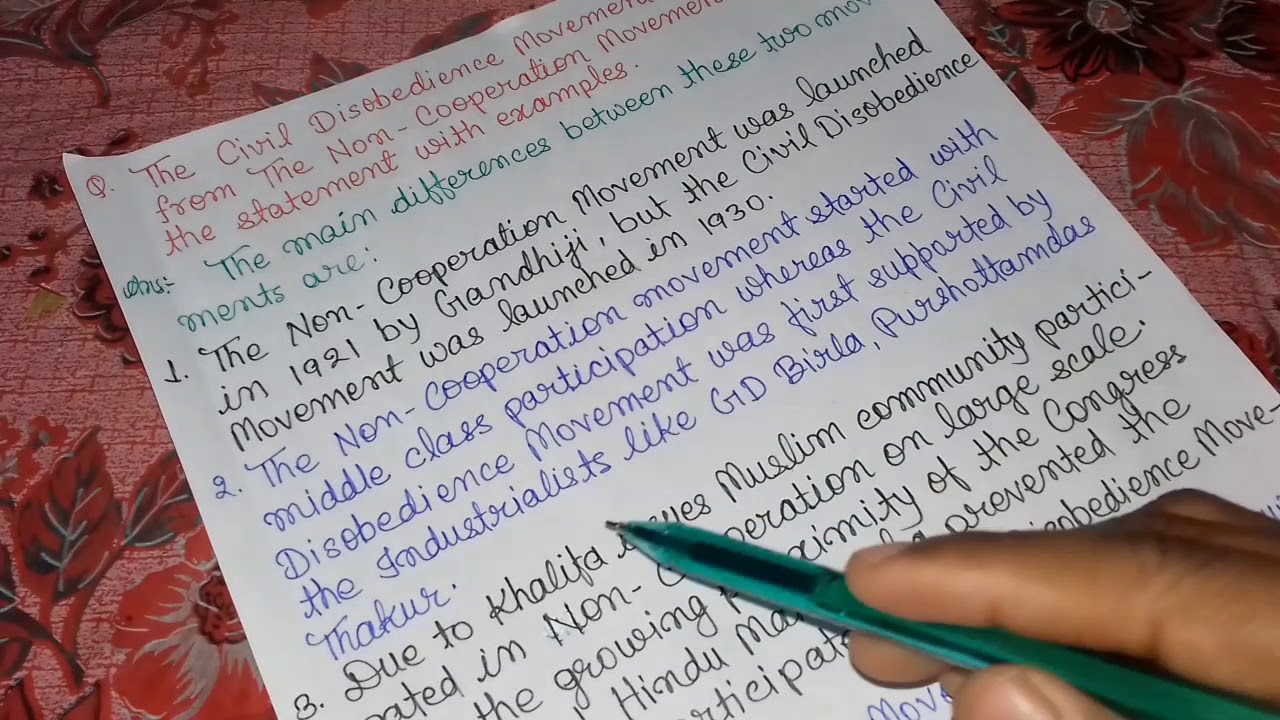 Q. The Civil Disobedience Movement
from The Non-Cooperation Movement
the statement with examples.
Ans:- The main differences between these two mov
ments are:
1. The Non-Cooperation Movement was launched
in 1921 by Gandhiji, but the Civil Disobedience
Movement was launched in 1930.
2. The Non-Cooperation movement started with
middle class participation whereas the Civil
Disobedience Movement was first supported by
the Industrialists like GD Birla, Purshottamdas
Thakur.
3. Due to Khalifa Muslim community partici-
pated in Non- peration on large scale.
the growing ximity of the Congress
Hindu Ma prevented the
rticipat obedience Move-
Move